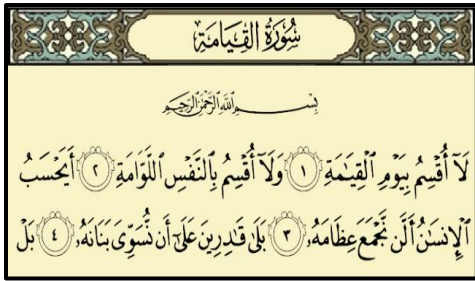 سُورَةُ القِيَامَةِ
بِسْمِ ٱللَّهِ ٱلرَّحْمَٰنِ ٱلرَّحِيمِ
لَآ أُقْسِمُ بِيَوْمِ ٱلْقِيَٰمَةِ ١ وَلَآ أُقْسِمُ بِٱلنَّفْسِ ٱللَّوَّامَةِ ٢ أَيَحْسَبُ
ٱلْإِنسَٰنُ أَلَّن نَّجْمَعَ عِظَامَهُۥ ٣ بَلَىٰ قَٰدِرِينَ عَلَىٰٓ أَن نُّسَوِّىَ بَنَانَهُۥ ٤ بَلْ